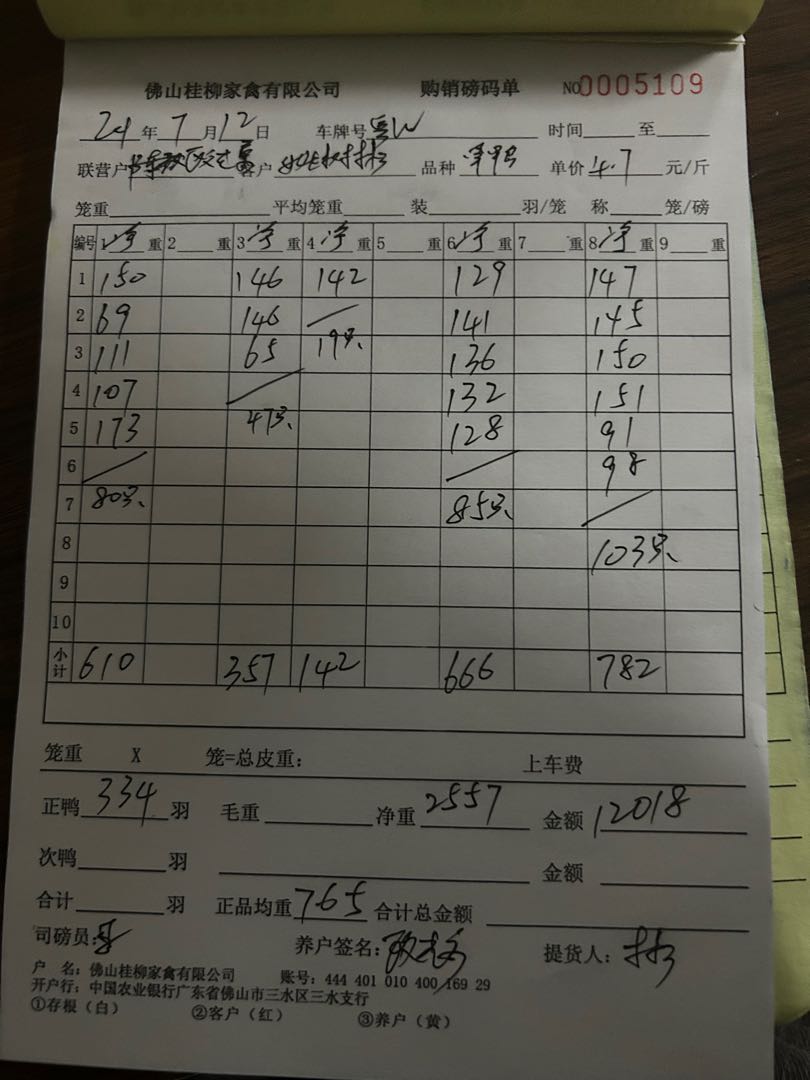 佛山桂柳家禽有限公司 购销磅码单 NO 0005109
24 年 7 月 12 日 车牌号 时间 至
联营户 客户 品种 单价 4.7 元/斤
笼重 平均笼重 装 羽/笼 称 笼/磅
编号 1 净 重 2 重 3 净 重 4 净 重 5 重 6 净 重 7 重 8 净 重 9 重
1 150 146 142 129 147
2 69 146 141 145
3 111 65 19只 136 150
4 107 132 151
5 173 47只 128 91
6 98
7 80只 85只
8 103只
9
10
小计 610 357 142 666 782
笼重 X 笼=总皮重： 上车费
正鸭 334 羽 毛重 净重 2557 金额 12018
次鸭 羽 金额
合计 羽 正品均重 765 合计总金额
司磅员： 养户签名： 提货人：
户 名：佛山桂柳家禽有限公司 账号：444 401 010 400 169 29
开户行：中国农业银行广东省佛山市三水区三水支行
①存根（白） ②客户（红） ③养户（黄）